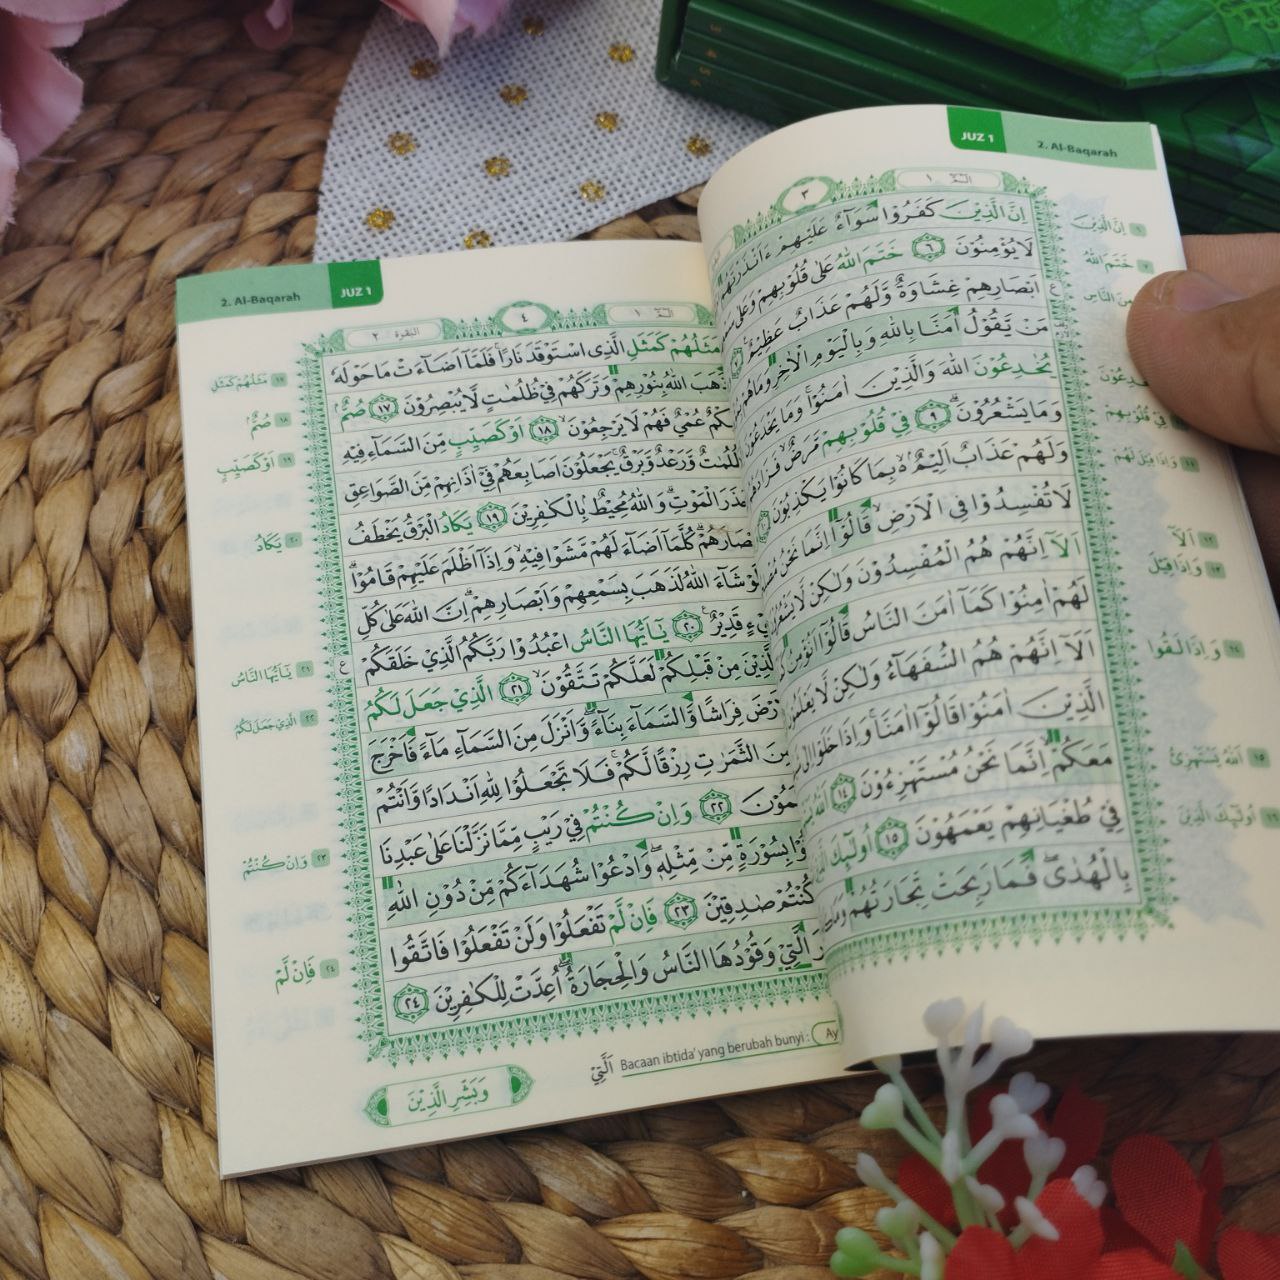 JUZ 1
2. Al-Baqarah
٣
الٓمّٓ ١
اِنَّ الَّذِيْنَ كَفَرُوْا سَوَآءٌ عَلَيْهِمْ ءَاَنْذَرْتَهُمْ
لَا يُؤْمِنُوْنَ ٦ خَتَمَ اللّٰهُ عَلٰى قُلُوْبِهِمْ وَعَلٰى
اَبْصَارِهِمْ غِشَاوَةٌ وَّلَهُمْ عَذَابٌ عَظِيْمٌ
مَنْ يَّقُوْلُ اٰمَنَّا بِاللّٰهِ وَبِالْيَوْمِ الْاٰخِرِ وَمَا هُمْ
يُخٰدِعُوْنَ اللّٰهَ وَالَّذِيْنَ اٰمَنُوْا وَمَا يَخْدَعُوْنَ
وَمَا يَشْعُرُوْنَ ٩ فِيْ قُلُوْبِهِمْ مَّرَضٌ فَزَادَهُمُ
وَلَهُمْ عَذَابٌ اَلِيْمٌ بِمَا كَانُوْا يَكْذِبُوْنَ
لَا تُفْسِدُوْا فِى الْاَرْضِ قَالُوْٓا اِنَّمَا نَحْنُ
اَلَآ اِنَّهُمْ هُمُ الْمُفْسِدُوْنَ وَلٰكِنْ لَّا يَشْعُرُوْنَ
لَهُمْ اٰمِنُوْا كَمَآ اٰمَنَ النَّاسُ قَالُوْٓا اَنُؤْمِنُ
اَلَآ اِنَّهُمْ هُمُ السُّفَهَآءُ وَلٰكِنْ لَّا يَعْلَمُوْنَ
الَّذِيْنَ اٰمَنُوْا قَالُوْٓا اٰمَنَّا وَاِذَا خَلَوْا اِلٰى
مَعَكُمْ اِنَّمَا نَحْنُ مُسْتَهْزِءُوْنَ ١٤ اَللّٰهُ
فِيْ طُغْيَانِهِمْ يَعْمَهُوْنَ ١٥ اُولٰۤىِٕكَ
بِالْهُدٰى فَمَا رَبِحَتْ تِّجَارَتُهُمْ وَمَا
٦ اِنَّ الَّذِيْنَ
٧ خَتَمَ اللّٰهُ
فِيْ قُلُوْبِهِمْ
١١ وَاِذَا قِيْلَ لَهُمْ
١٢ اَلَآ
١٣ وَاِذَا قِيْلَ
١٤ وَاِذَا لَقُوا
١٥ اَللّٰهُ يَسْتَهْزِئُ
١٦ اُولٰۤىِٕكَ الَّذِيْنَ
2. Al-Baqarah
JUZ 1
الٓمّٓ ١
٤
البقرة ٢
مَثَلُهُمْ كَمَثَلِ الَّذِى اسْتَوْقَدَ نَارًا فَلَمَّآ اَضَآءَتْ مَا حَوْلَهٗ
ذَهَبَ اللّٰهُ بِنُوْرِهِمْ وَتَرَكَهُمْ فِيْ ظُلُمٰتٍ لَّا يُبْصِرُوْنَ ١٧ صُمٌّ
بُكْمٌ عُمْيٌ فَهُمْ لَا يَرْجِعُوْنَ ١٨ اَوْ كَصَيِّبٍ مِّنَ السَّمَآءِ فِيْهِ
ظُلُمٰتٌ وَّرَعْدٌ وَّبَرْقٌ يَجْعَلُوْنَ اَصَابِعَهُمْ فِيْٓ اٰذَانِهِمْ مِّنَ الصَّوَاعِقِ
حَذَرَ الْمَوْتِ وَاللّٰهُ مُحِيْطٌ بِالْكٰفِرِيْنَ ١٩ يَكَادُ الْبَرْقُ يَخْطَفُ
اَبْصَارَهُمْ كُلَّمَآ اَضَآءَ لَهُمْ مَّشَوْا فِيْهِ وَاِذَآ اَظْلَمَ عَلَيْهِمْ قَامُوْا
وَلَوْ شَآءَ اللّٰهُ لَذَهَبَ بِسَمْعِهِمْ وَاَبْصَارِهِمْ اِنَّ اللّٰهَ عَلٰى كُلِّ
شَيْءٍ قَدِيْرٌ ٢٠ يٰٓاَيُّهَا النَّاسُ اعْبُدُوْا رَبَّكُمُ الَّذِيْ خَلَقَكُمْ
وَالَّذِيْنَ مِنْ قَبْلِكُمْ لَعَلَّكُمْ تَتَّقُوْنَ ٢١ الَّذِيْ جَعَلَ لَكُمُ
الْاَرْضَ فِرَاشًا وَّالسَّمَآءَ بِنَآءً وَّاَنْزَلَ مِنَ السَّمَآءِ مَآءً فَاَخْرَجَ
مِنَ الثَّمَرٰتِ رِزْقًا لَّكُمْ فَلَا تَجْعَلُوْا لِلّٰهِ اَنْدَادًا وَّاَنْتُمْ
تَعْلَمُوْنَ ٢٢ وَاِنْ كُنْتُمْ فِيْ رَيْبٍ مِّمَّا نَزَّلْنَا عَلٰى عَبْدِنَا
فَأْتُوْا بِسُوْرَةٍ مِّنْ مِّثْلِهٖ وَادْعُوْا شُهَدَآءَكُمْ مِّنْ دُوْنِ اللّٰهِ
كُنْتُمْ صٰدِقِيْنَ ٢٣ فَاِنْ لَّمْ تَفْعَلُوْا وَلَنْ تَفْعَلُوْا فَاتَّقُوا
الَّتِيْ وَقُوْدُهَا النَّاسُ وَالْحِجَارَةُ اُعِدَّتْ لِلْكٰفِرِيْنَ ٢٤
١٧ مَثَلُهُمْ كَمَثَلِ
١٨ صُمٌّ
١٩ اَوْ كَصَيِّبٍ
٢٠ يَكَادُ
٢١ يٰٓاَيُّهَا النَّاسُ
٢٢ الَّذِيْ جَعَلَ لَكُمُ
٢٣ وَاِنْ كُنْتُمْ
٢٤ فَاِنْ لَّمْ
اَلَّتِيْ Bacaan ibtida' yang berubah bunyi : Ay
وَبَشِّرِ الَّذِيْنَ